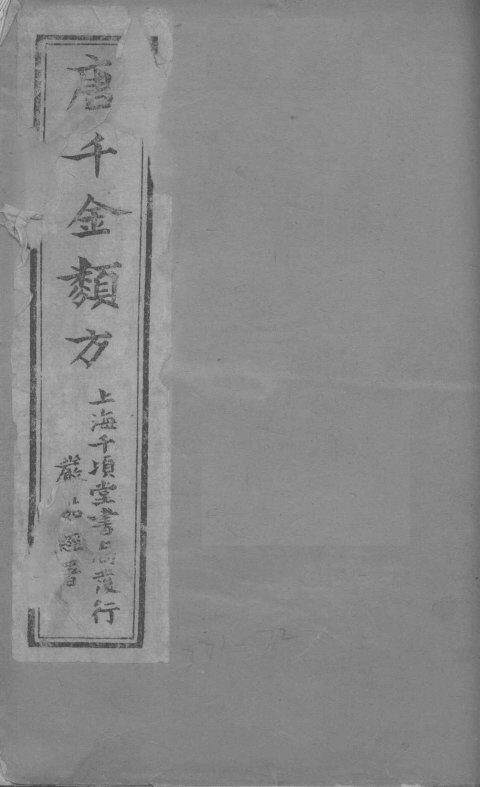 唐千金類方
上海千頃堂書局發行
嚴
書
331 72